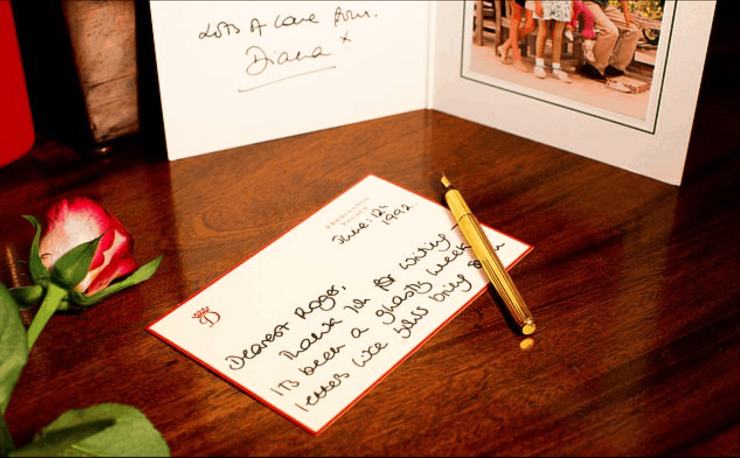 Lots of love from,
Diana x
KENSINGTON
PALACE
June: 12th
1992.
D
Dearest Roger,
Thank you for writing
ITs been a ghastly week
letters like yours bring